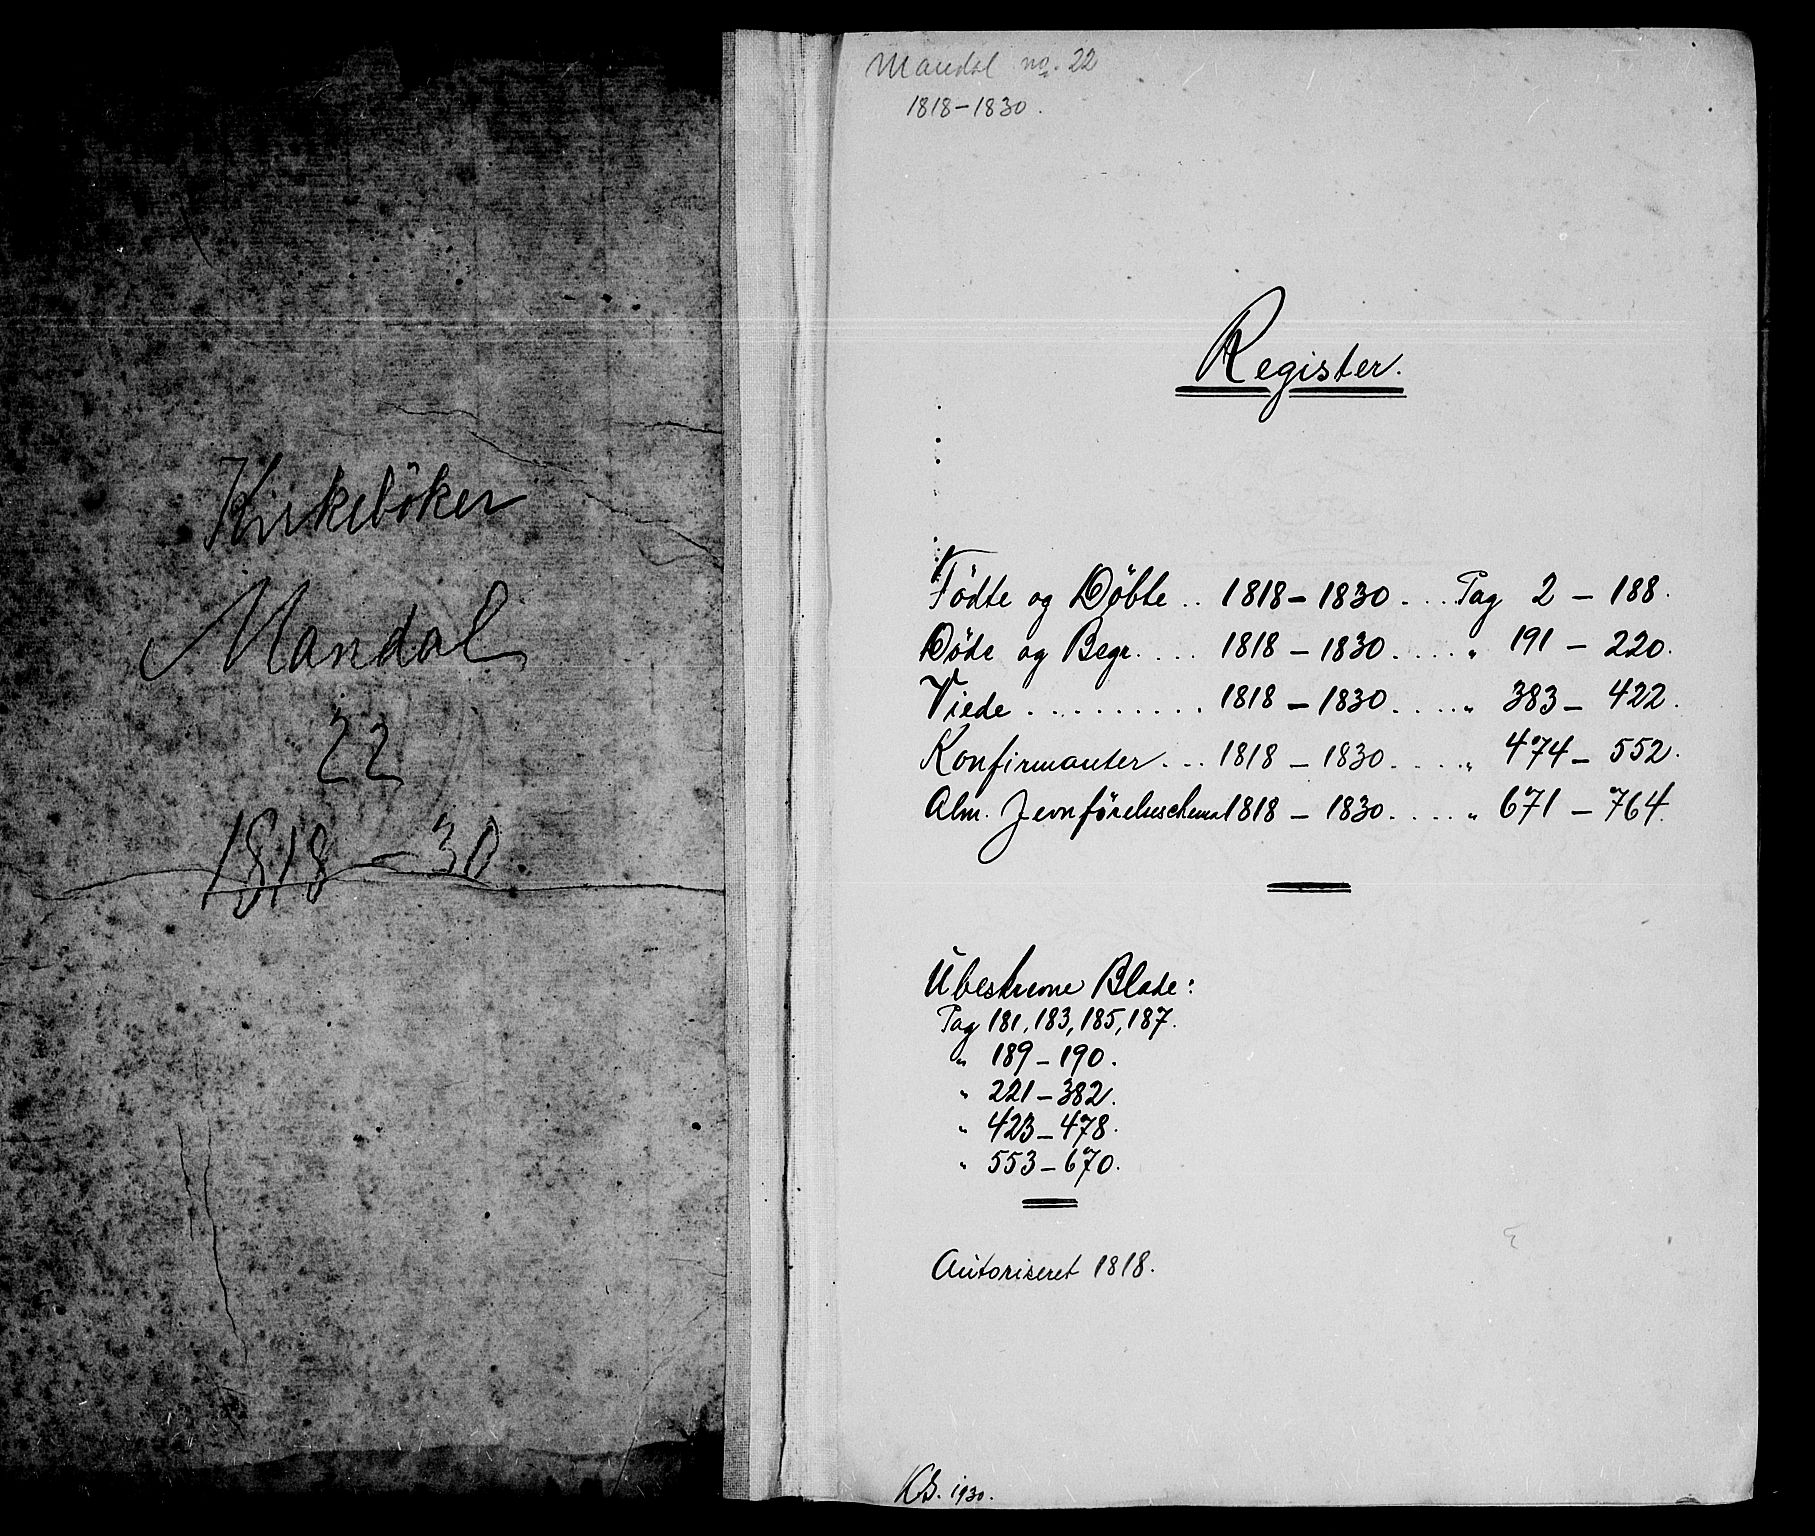 Kirkeböker
Mandal
22
1818-30
Mandal no. 22
1818-1830.
Register.
Födte og Döbte .. 1818-1830 ... Pag 2 - 188.
Döde og Begr. ... 1818-1830 .... „ 191 - 220.
Viede ......... 1818-1830 .... „ 383 - 422.
Konfirmanter ... 1818-1830 .... „ 474 - 552.
Alm. Jevnförelsesschema 1818-1830 .... „ 671 - 764.
Ubeskrevne Blade:
Pag 181, 183, 185, 187.
„ 189-190.
„ 221-382.
„ 423-478.
„ 553-670.
Autoriseret 1818.
KB. 1930.